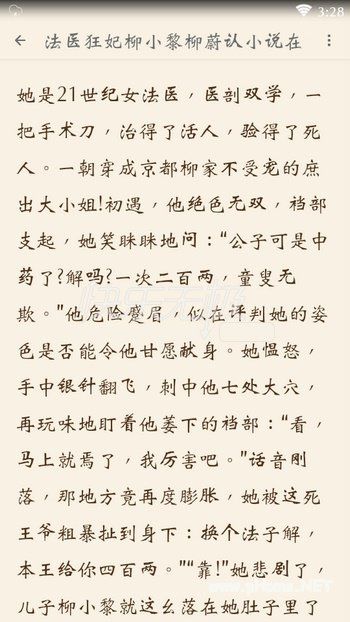 3:28
法医狂妃柳小黎柳蔚认小说在
她是21世纪女法医，医剖双学，一
把手术刀，治得了活人，验得了死
人。一朝穿成京都柳家不受宠的庶
出大小姐!初遇，他绝色无双，裆部
支起，她笑眯眯地问：“公子可是中
药了?解吗?一次二百两，童叟无
欺。"他危险蹙眉，似在评判她的姿
色是否能令他甘愿献身。她愠怒，
手中银针翻飞，刺中他七处大穴，
再玩味地盯着他萎下的裆部：“看，
马上就焉了，我厉害吧。"话音刚
落，那地方竟再度膨胀，她被这死
王爷粗暴扯到身下：换个法子解，
本王给你四百两。"“靠!"她悲剧了，
儿子柳小黎就这幺落在她肚子里了